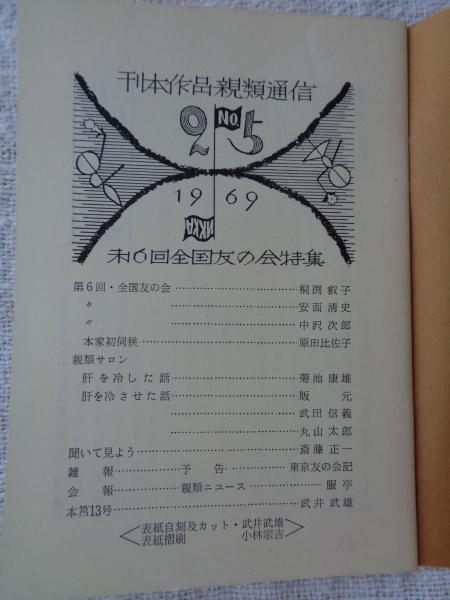 刊本作品親類通信
No.
25
1969
オ6回全国友の会特集
第6回・全国友の会……………………桐渕叡子
〃 ……………………安面清史
〃 ……………………中沢次郎
本家初伺候……………………原田比佐子
親類サロン
肝を冷した話……………………菊池康雄
肝を冷させた話……………………版元
……………………武田信義
……………………丸山太郎
聞いて見よう……………………斎藤正一
雑報……………予告……………東京友の会記
会報……………親類ニュース……………服亭
本第13号……………………武井武雄
表紙自刻及カット・武井武雄
表紙摺刷 小林宗吉